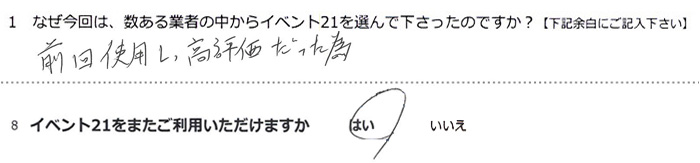 1 なぜ今回は、数ある業者の中からイベント21を選んで下さったのですか？【下記余白にご記入下さい】
前回使用し、高評価だった為
8 イベント21をまたご利用いただけますか　はい　いいえ